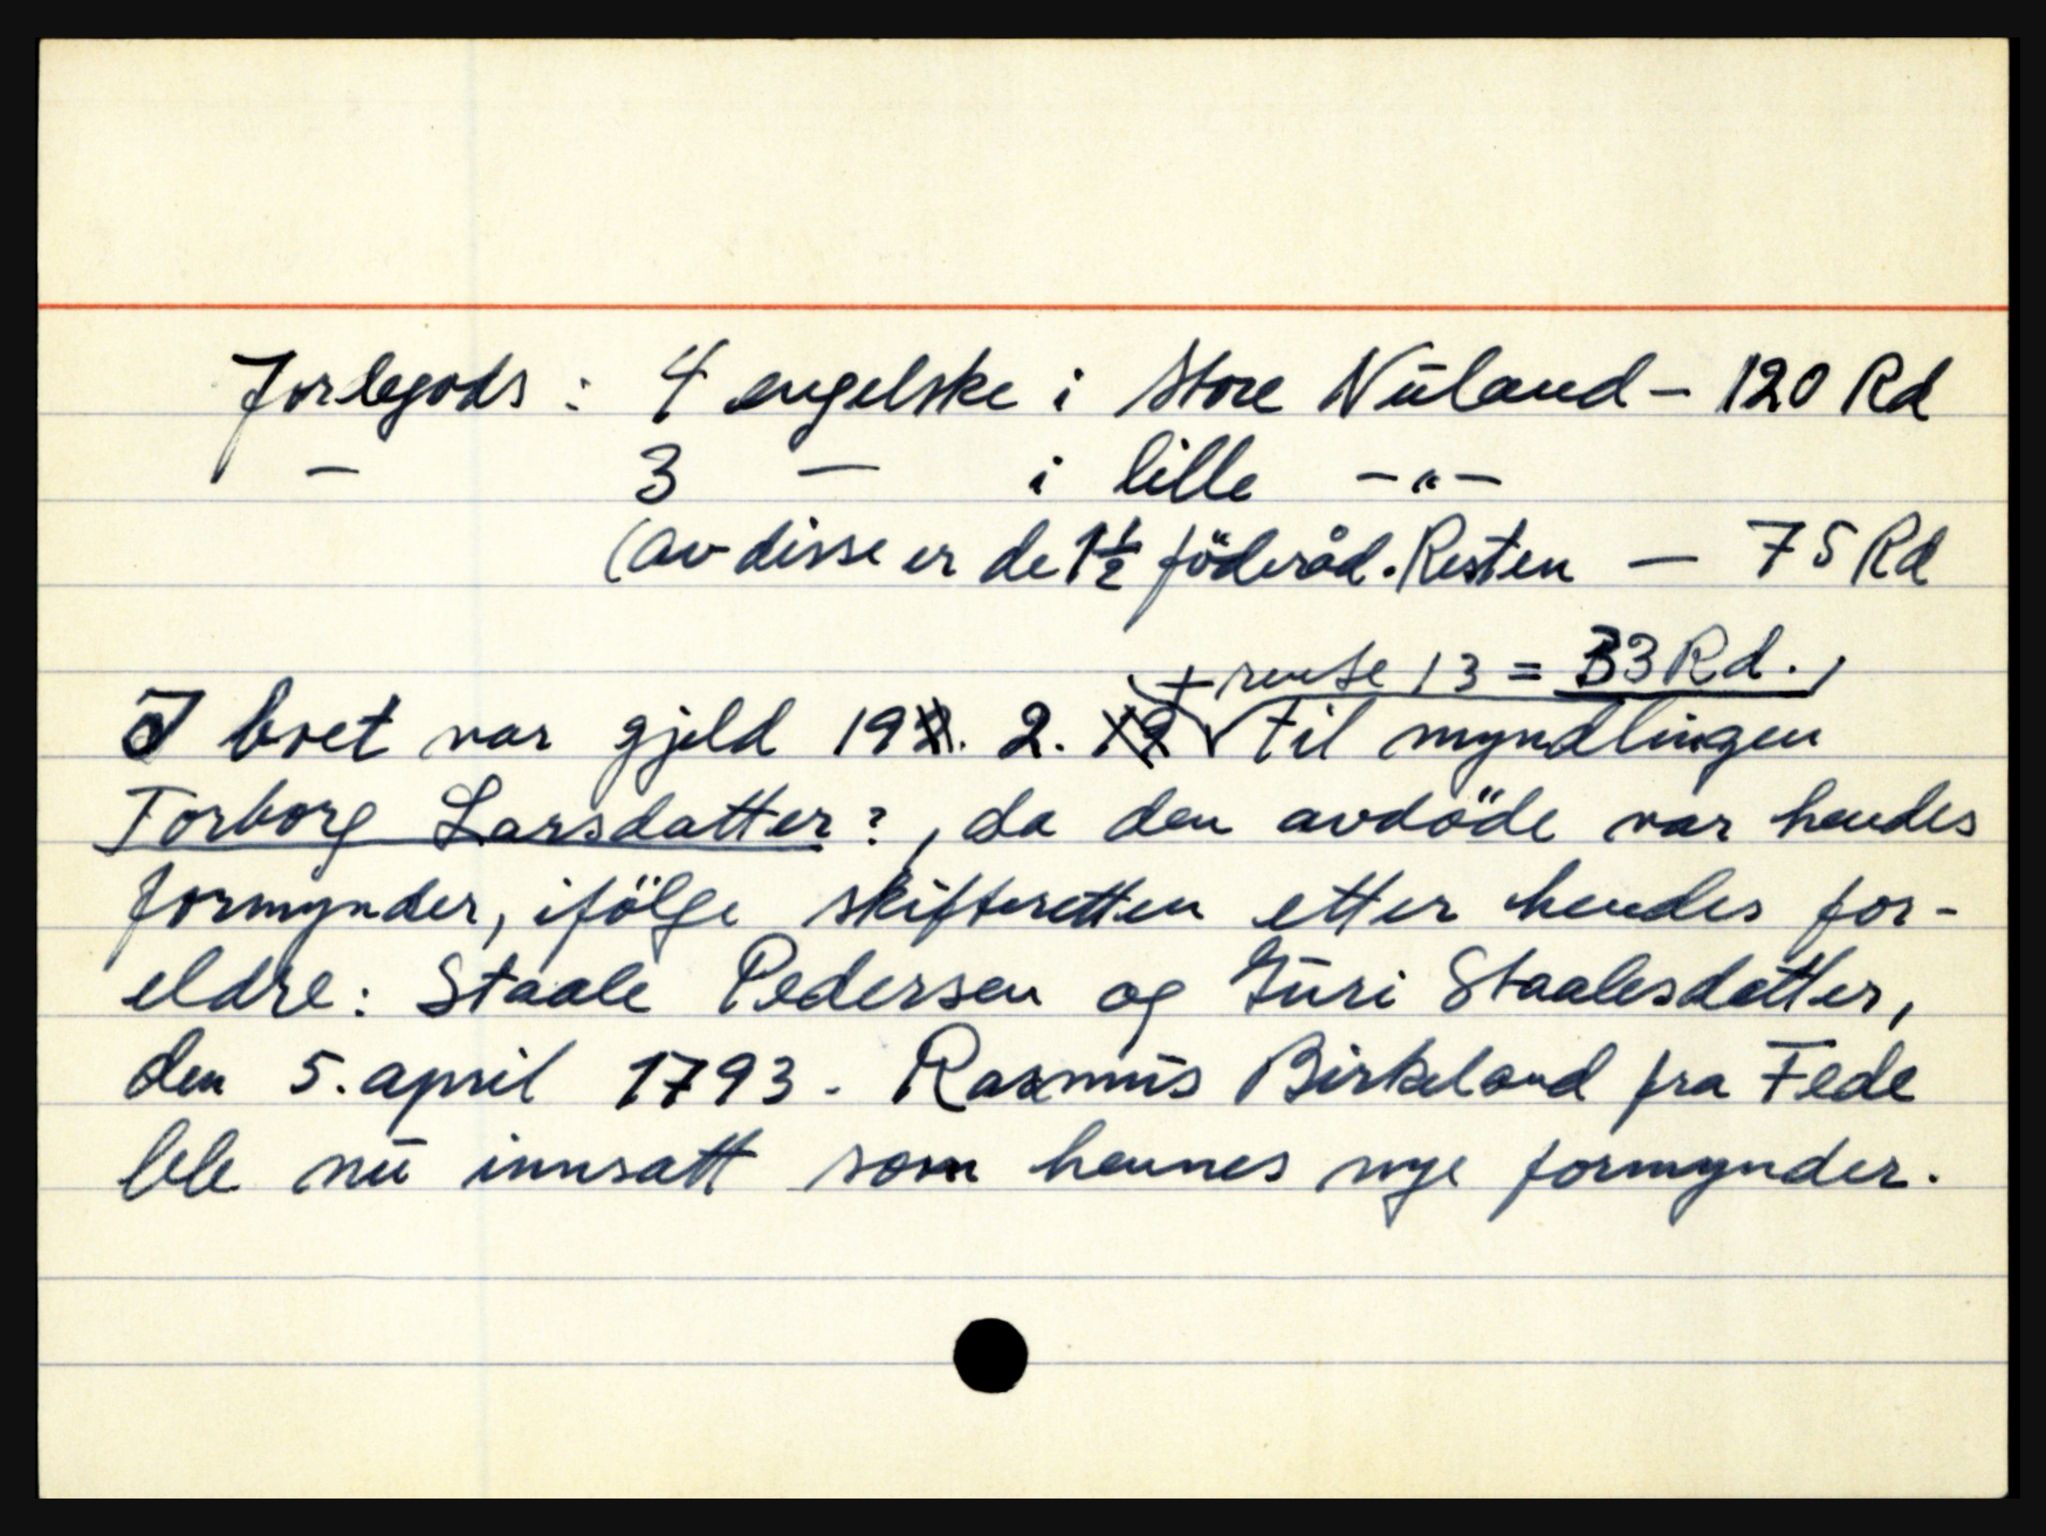 Jordegods : 4 engelske i Store Nuland - 120 Rd
— 3 — i lille —"—
(av disse er de 1½ föderåd. Resten — 75 Rd
+ rente 13 = 33 Rd.,
I boet var gjeld 19. 2. til myndlingen
Torborg Larsdatter?, da den avdöde var hendes
formynder, ifölge skifteretten etter hendes for-
eldre: Staale Pedersen og Guri Staalesdatter,
den 5. april 1793. Rasmus Birkeland fra Fede
ble nu innsatt som hennes nye formynder.